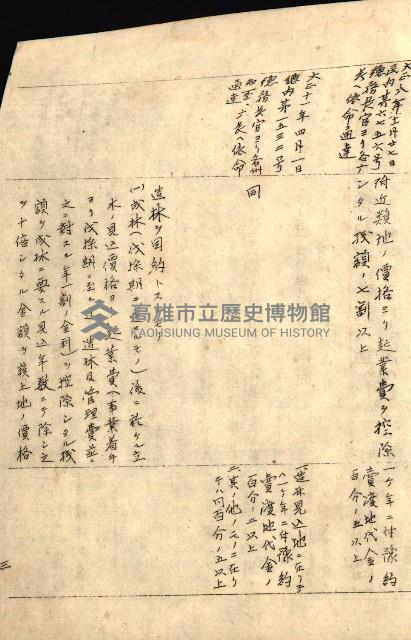 大正八年十二月十七日
民内第六七五六号
總務長官ヨリ各
長ヘ依命通達
附近類地ノ價格ヨリ起業費ヲ控除
シタル殘額ノ七割以上
一ケ年ニ付豫約
賣渡地代金ノ
百分ノ五以上
大正十一年四月一日
總内第一五三二号
總務長官ヨリ各州
知事、廳長ヘ依命
通達
同
造林ヲ目的トスルモノ
(一)成林(伐採期ニ至ルモノ)後ニ於ケル立
木ノ見込價格ヨリ起業費(事業着手
ヨリ伐採期ニ至ル造林及管理費並ニ
之ニ對スル年一割ノ金利)ヲ控除シタル殘
額ヲ成林ニ要スル見込年數ニテ除シ之
ヲ十倍シタル金額ヲ該土地ノ價格
一、造林見込地ニ在リテ
ハ一ケ年ニ付豫約
賣渡地代金ノ
百分ノ二以上
二、其ノ他ノモノニ在リ
テハ同百分ノ五以上
三
高雄市立歷史博物館
KAOHSIUNG MUSEUM OF HISTORY